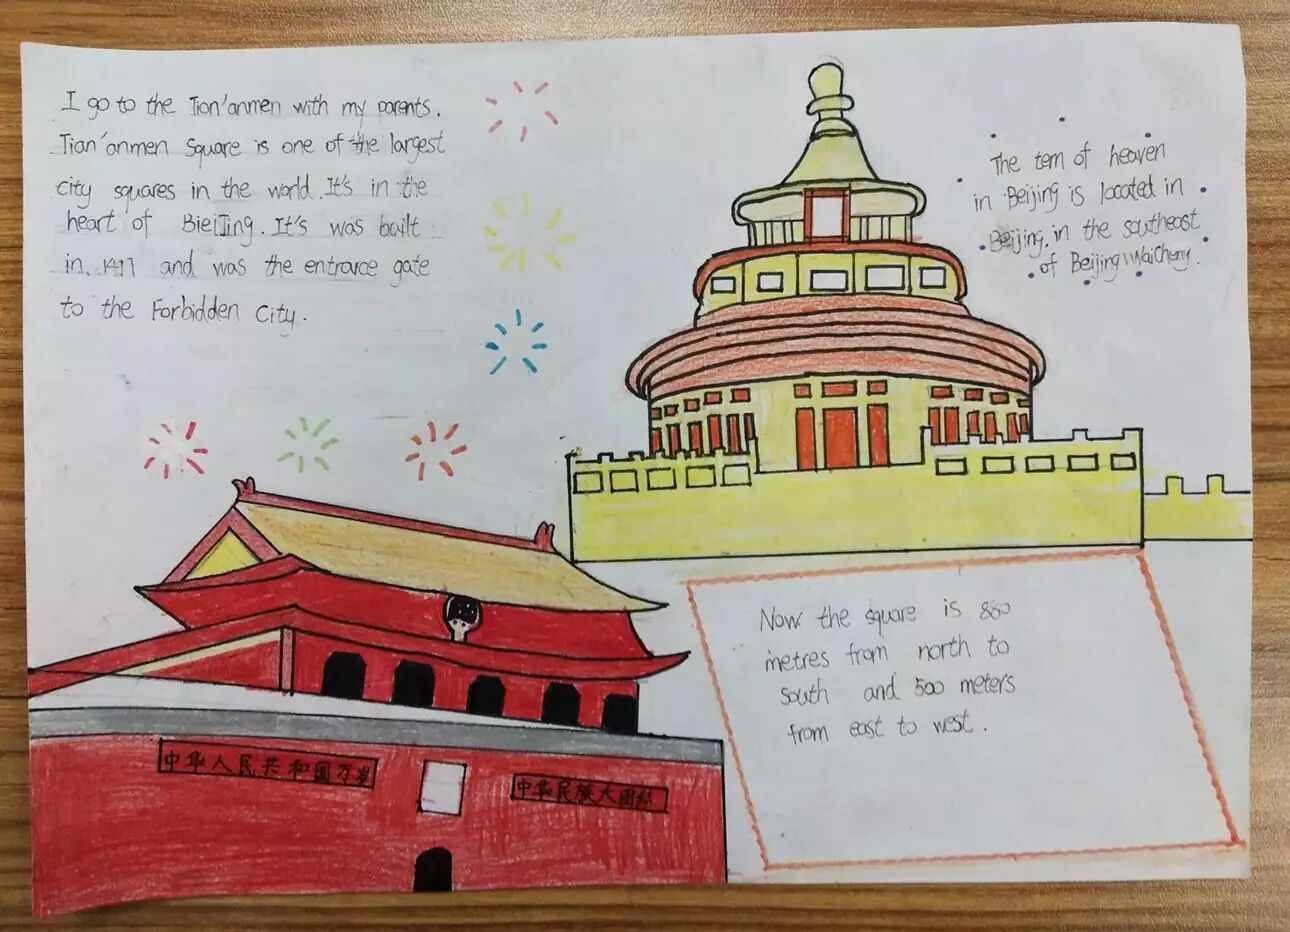 I go to the Tian'anmen with my parents.
Tian'anmen Square is one of the largest
city squares in the world. It's in the
heart of BieiJing. It's was built
in 1417 and was the entrance gate
to the Forbidden City.
The tem of heaven
in Beijing is located in
Beijing, in the southeast
of Beijing WaiCheng.
Now the square is 880
metres from north to
south and 500 meters
from east to west.
中华人民共和国万岁
中华民族大团结